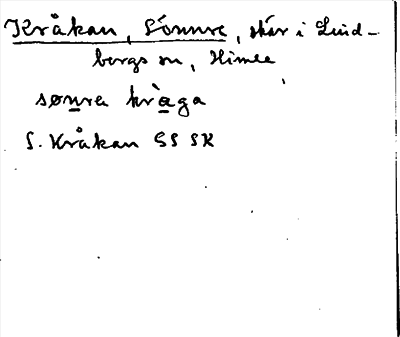 Kråkan, Sönnre, skär i Lind-
bergs sn, Himle
sønrea kràga
S. Kråkan SS SK